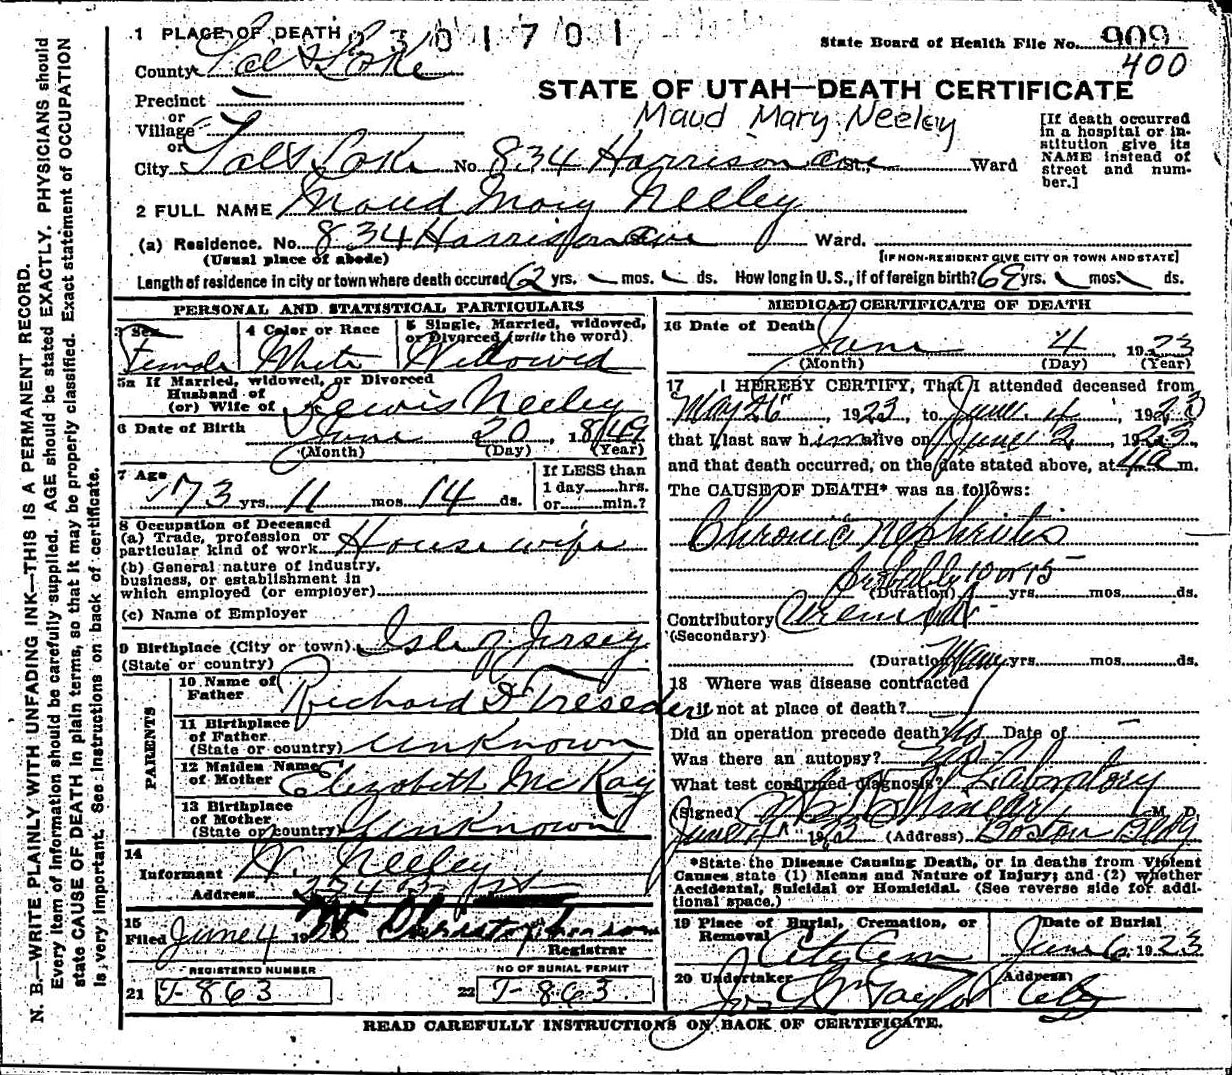 1 PLACE OF DEATH 2301701
State Board of Health File No. 909
400
County Salt Lake
STATE OF UTAH—DEATH CERTIFICATE
Maud Mary Neeley
Precinct
or
Village
or
City Salt Lake No. 834 Harrison ave St., Ward
[If death occurred in a hospital or institution give its NAME instead of street and number.]
2 FULL NAME Maud Mary Neeley
(a) Residence. No. 834 Harrison ave Ward.
(Usual place of abode) [IF NON-RESIDENT GIVE CITY OR TOWN AND STATE]
Length of residence in city or town where death occured 62 yrs. mos. ds. How long in U.S., if of foreign birth? yrs. mos. ds.
PERSONAL AND STATISTICAL PARTICULARS
3 Sex Female
4 Color or Race White
5 Single, Married, widowed, or Divorced (write the word). Widowed
5a If Married, widowed, or Divorced
Husband of
(or) Wife of Lewis Neeley
6 Date of Birth June 20, 1849
(Month) (Day) (Year)
7 Age 73 yrs. 11 mos. 14 ds.
If LESS than
1 day......hrs.
or......min.?
8 Occupation of Deceased
(a) Trade, profession or
particular kind of work Housewife
(b) General nature of industry,
business, or establishment in
which employed (or employer)
(c) Name of Employer
9 Birthplace (City or town) Isle of Jersey
(State or country)
PARENTS
10 Name of
Father Richard D Treseder
11 Birthplace
of Father
(State or country) Unknown
12 Maiden Name
of Mother Elizabeth McKay
13 Birthplace
of Mother
(State or country) Unknown
14
Informant W. Neeley
Address
15
Filed June 4 1923 Christopherson
Registrar
REGISTERED NUMBER
21 T-863
NO OF BURIAL PERMIT
22 T-863
MEDICAL CERTIFICATE OF DEATH
16 Date of Death June 4, 1923
(Month) (Day) (Year)
17 I HEREBY CERTIFY, That I attended deceased from
May 26", 1923, to June 4, 1923
that I last saw him alive on June 2, 1923,
and that death occurred, on the date stated above, at 4 a m.
The CAUSE OF DEATH* was as follows:
Chronic Nephritis
probably 10 or 15
(Duration) yrs. mos. ds.
Contributory
(Secondary)
(Duration) Many yrs. mos. ds.
18 Where was disease contracted
if not at place of death?
Did an operation precede death? No Date of –
Was there an autopsy? No
What test confirmed diagnosis? Laboratory
(Signed) M. D.
June 4 1923 (Address) Boston Bldg
*State the Disease Causing Death, or in deaths from Violent
Causes state (1) Means and Nature of Injury; and (2) whether
Accidental, Suicidal or Homicidal. (See reverse side for additional space.)
19 Place of Burial, Cremation, or
Removal City Cem
Date of Burial
June 6, 1923
20 Undertaker Jos Wm Taylor
Address City
READ CAREFULLY INSTRUCTIONS ON BACK OF CERTIFICATE.
N. B.—WRITE PLAINLY WITH UNFADING INK—THIS IS A PERMANENT RECORD.
Every item of information should be carefully supplied. AGE should be stated EXACTLY. PHYSICIANS should
state CAUSE OF DEATH in plain terms, so that it may be properly classified. Exact statement of OCCUPATION
is very important. See instructions on back of certificate.